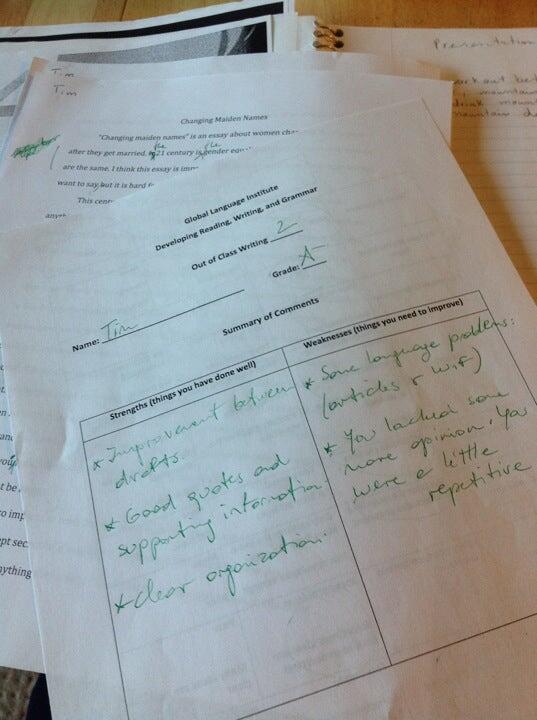 Tim
Tim
Changing Maiden Names
"Changing maiden names" is an essay about women
after they get married. 21 century is gender
the
the
are the same. I think this essay is
want to say, but it is hard
This
Presentation
mountain
drink
mountain
Global Language Institute
Developing Reading, Writing, and Grammar
Out of Class Writing 2
Grade: A-
Name: Tim
Summary of Comments
Strengths (things you have done well)
Weaknesses (things you need to improve)
* Improvement between
drafts.
* Good quotes and
supporting information.
* clear organization.
* Some language problems:
(articles & w.f)
* You lacked some
more opinion. You
were a little
repetitive